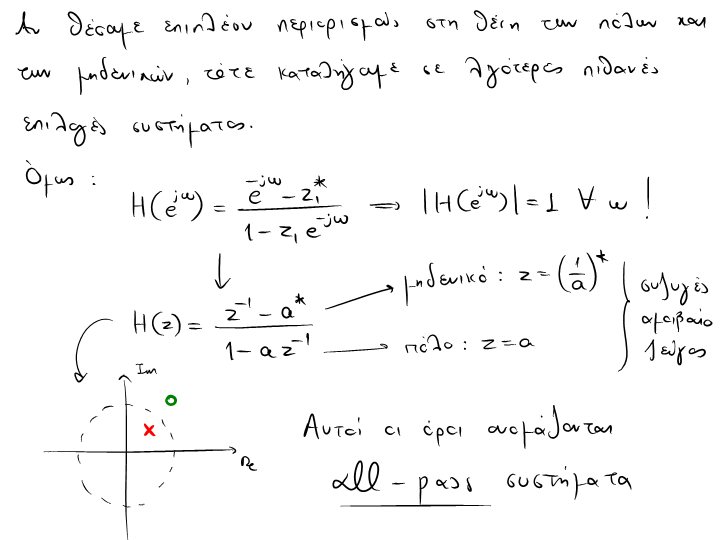 Αν θέσαμε επιπλέον περιορισμούς στη θέση των πόλων και
των μηδενικών, τότε καταλήγαμε σε λιγότερες πιθανές
επιλογές συστήματος.
Όμως :
H(e^{jω}) = \frac{e^{-jω} - z_1^*}{1 - z_1 e^{-jω}} ⟹ |H(e^{jω})| = 1 ∀ ω !
H(z) = \frac{z^{-1} - a^*}{1 - a z^{-1}}
μηδενικό : z = (\frac{1}{a})^*
πόλο : z = a
συζυγές
αμοιβαίο
ζεύγος
Im
Re
Αυτοί οι όροι ονομάζονται
all - pass συστήματα